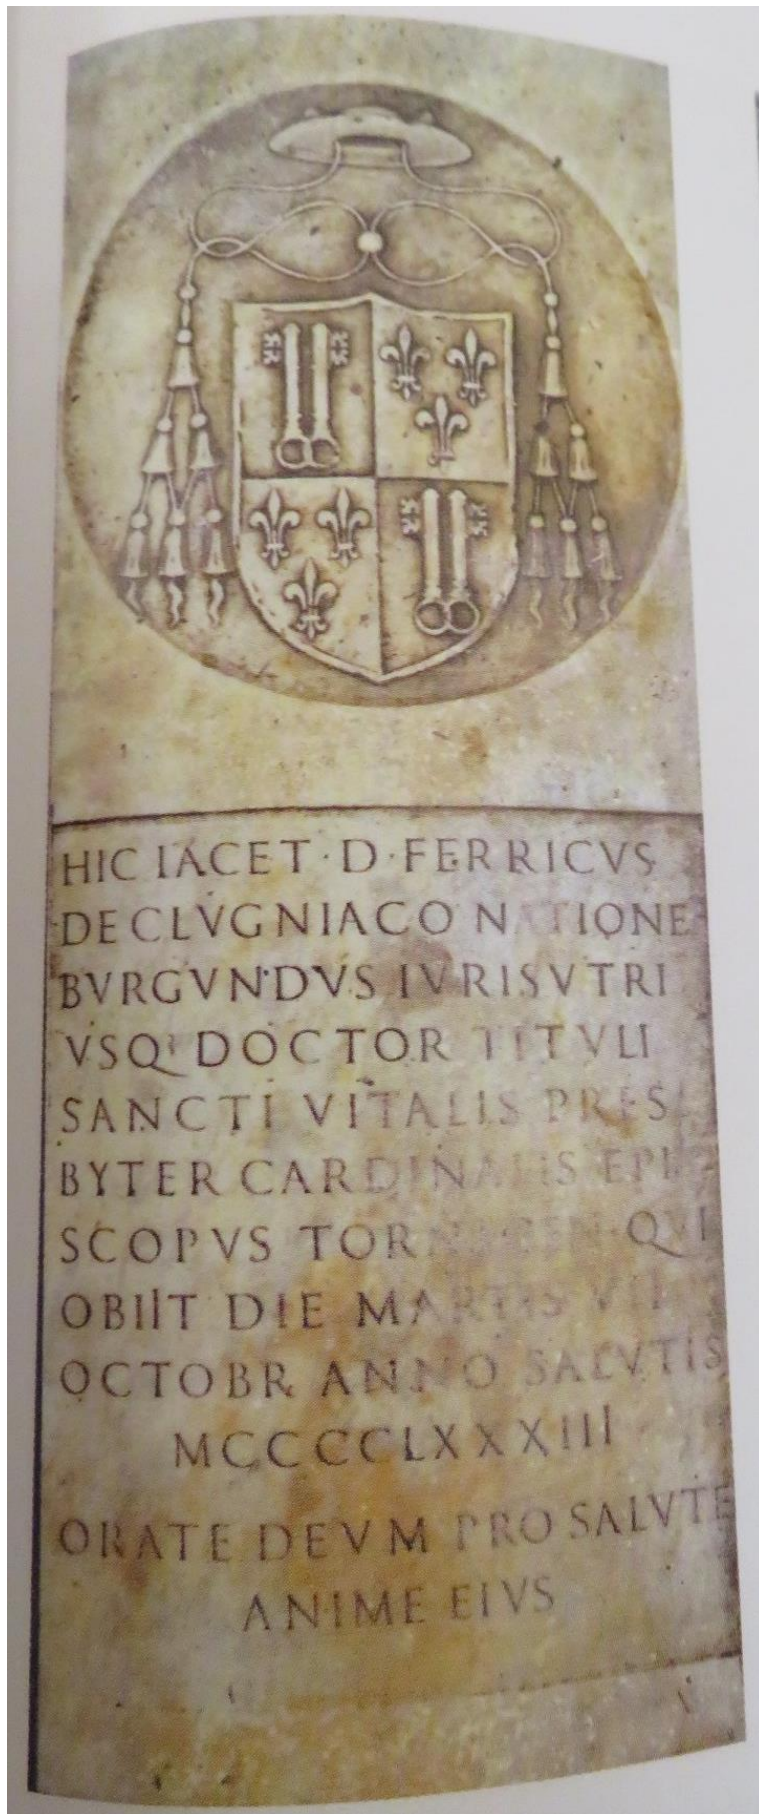 HIC IACET · D · FERRICVS
DE CLVGNIACO NATIONE
BVRGVNDVS IVRIS VTRI
VSQ' DOCTOR TITVLI
SANCTI VITALIS PRES
BYTER CARDINALIS EPI
SCOPVS TORNACEN · QVI
OBIIT DIE MARTIS VII
OCTOBR ANNO SALVTIS
MCCCCLXXXIII
ORATE DEVM PRO SALVTE
ANIME EIVS